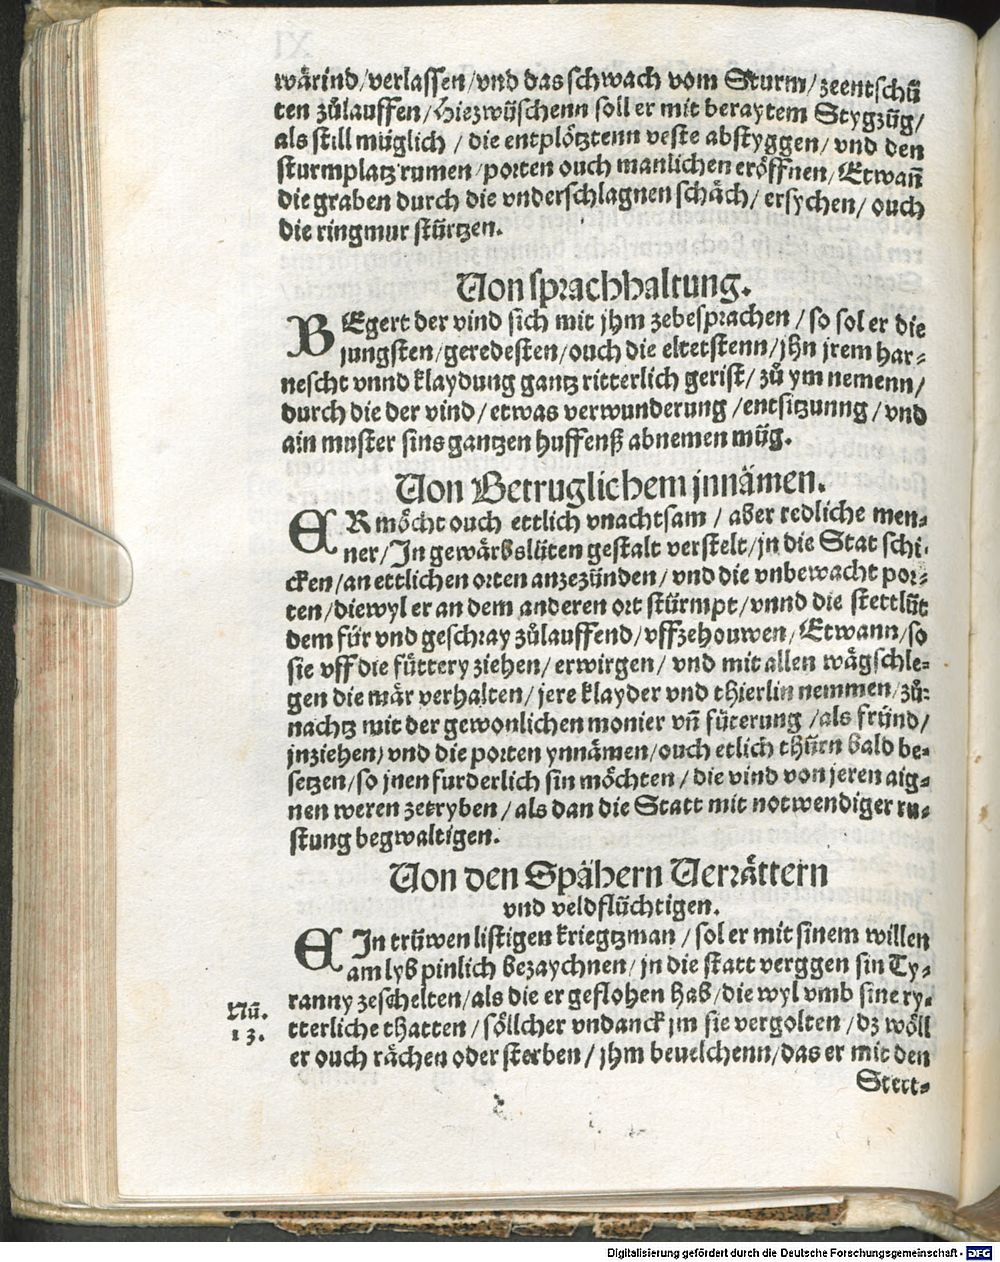 wärind/verlassen/vnd das schwach vom Sturm/zeentschü
ten zůlauffen/Hiezwüschenn soll er mit beraytem Stygzüg/
als still müglich / die entplötztenn veste abstyggen/ vnd den
sturmplatz rumen/porten ouch manlichen eröffnen/Etwañ
die graben durch die vnderschlagnen schäch/ ersychen/ ouch
die ringmur stürtzen.
Von sprachhaltung.
BEgert der vind sich mit jhm zebesprachen / so sol er die
jungsten/geredesten/ouch die eltetstenn/jhn jrem har⸗
nescht vnnd klaydung gantz ritterlich gerist/ zů ym nemenn/
durch die der vind/ etwas verwunderung /entsitzunng / vnd
ain muster sins gantzen huffenß abnemen müg.
Von Betruglichem jnnämen.
ER möcht ouch ettlich vnachtsam / aber redliche men⸗
ner/Jn gewärbslüten gestalt verstelt/jn die Stat schi⸗
cken/an ettlichen orten anzezünden/ vnd die vnbewacht por⸗
ten/diewyl er an dem anderen ort stürmpt/vnnd die stettlüt
dem für vnd geschray zůlauffend/vffzehouwen/Etwann/so
sie vff die füttery ziehen/ erwirgen/ vnd mit allen wägschle⸗
gen die mär verhalten/jere klayder vnd thierlin nemmen/zů⸗
nachtz mit der gewonlichen monier vñ füterung /als fründ/
jnziehen/vnd die porten ynnämen/ouch etlich thürn bald be⸗
setzen/so jnen furderlich sin möchten/ die vind von jeren aig⸗
nen weren zetryben/als dan die Statt mit notwendiger ru⸗
stung begwaltigen.
Von den Spähern Verrättern
vnd veldflüchtigen.
EIn trüwen listigen kriegtzman / sol er mit sinem willen
am lyb pinlich bezaychnen/ jn die statt verggen sin Ty⸗
ranny zeschelten/als die er geflohen hab/die wyl vmb sine ry⸗
Nũ.
13.
tterliche thatten / söllcher vndanck jm sie vergolten / dz wöll
er ouch rächen oder sterben / jhm beuelchenn/das er mit den
Stett⸗
Digitalisierung gefördert durch die Deutsche Forschungsgemeinschaft - DFG